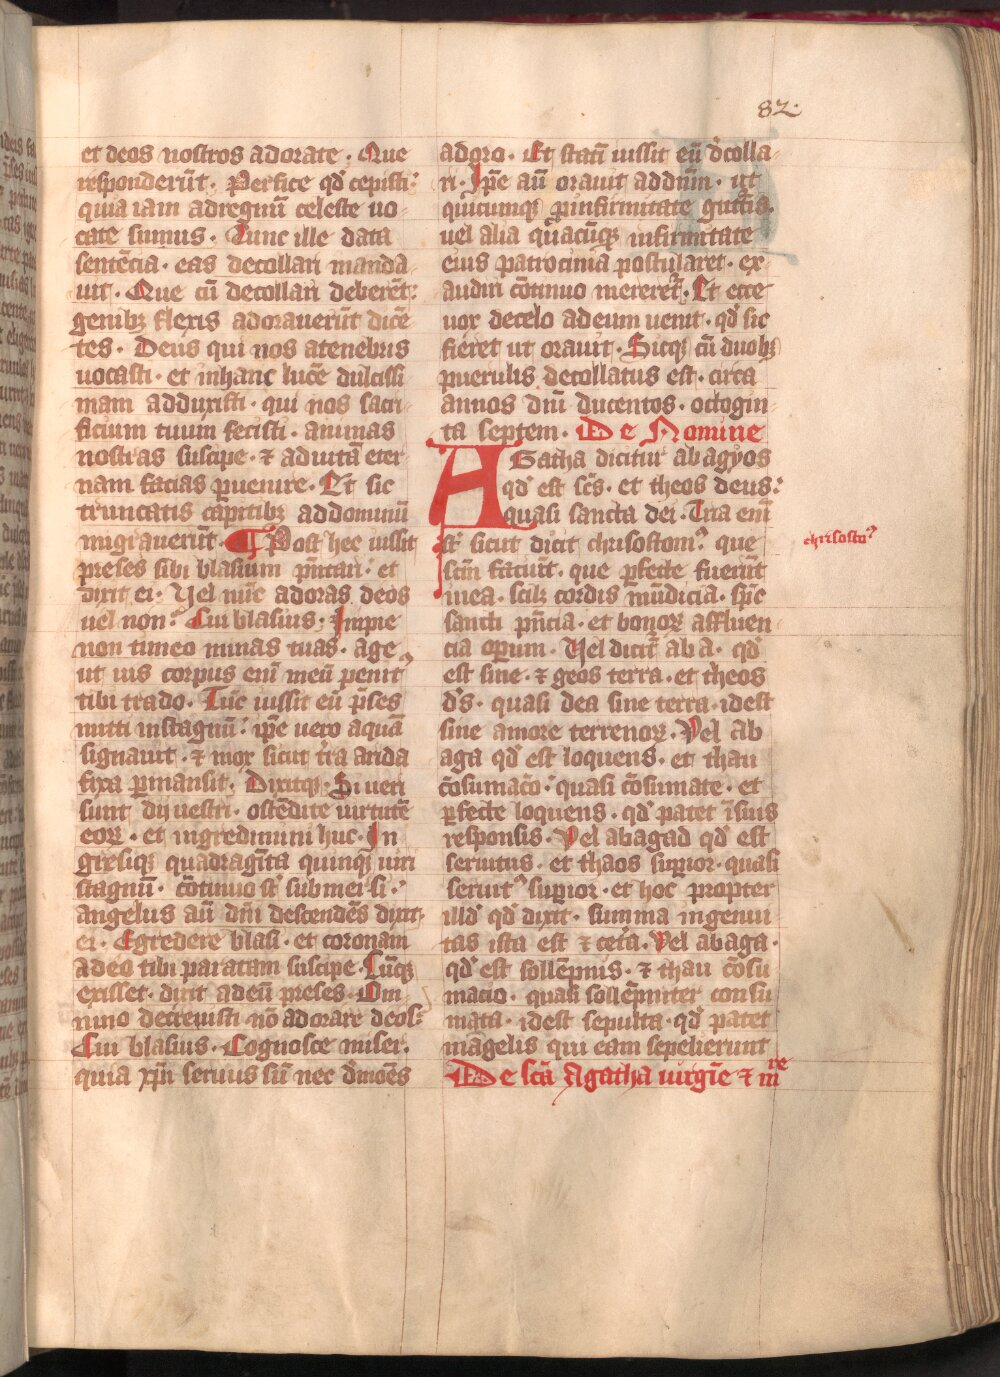 82.
et deos nostros adorate. Que
responderūt. Perfice qd̄ cepisti:
quia iam adregnū celeste uo
cate sumus. Tunc ille data
sentēcia. eas decollari manda
uit. Que cū decollari deberēt:
genibꝫ flexis adorauerūt dicē
tes. Deus qui nos atenebris
uocasti. et inhanc lucē dulcissi
mam adduxisti. qui nos sacri
ficium tuum fecisti. animas
nostras suscipe. ⁊ aduitā eter
nam facias ꝑuenire. Et sic
truncatis capitibꝫ addominū
migrauerūt. ¶ Post hec iussit
preses sibi blasium p̄ntari. et
dixit ei. Vel nūc adoras deos
uel non? Cui blasius. Impie
non timeo minas tuas. age
ut uis corpus enī meū penit9
tibi trado. Tūc iussit eū p̄ses
mitti instagnū. ip̄e uero aquā
signauit. ⁊ mox sicut tr̄a arida
fixa ꝑmansit. Dixitqꝫ. Si ueri
sunt dij uestri. ostēdite uirtutē
eoꝝ. et ingredimini huc. In
gressiqꝫ quadragīta quinqꝫ uiri
stagnū. cōtinuo st̄ submersi.
angelus aū dn̄i descendēs dixit
ei. Egredere blasi. et coronam
adeo tibi paratam suscipe. Cūqꝫ
exisset. dixit adeū preses. Om
nino decreuisti nō adorare deos:
Cui blasius. Cognosce miser.
quia xp̄i seruus sū nec dēmōēs
adoro. Et statī iussit eū dēcolla
ri. Ip̄e aū orauit addn̄m. ut
quicumqꝫ ꝓinfirmitate gutt̄is.
uel alia quacūqꝫ infirmitate
eius patrocinia postularet. ex
audiri cōtinuo meretet̄. Et ecce
uox decelo adeum uenit. qd̄ sic
fieret ut orauit. Sicqꝫ cū duobꝫ
puerulis decollatus est. circa
annos dn̄i ducentos. octogin
ta septem. De Nomine
AGatha dicitur ab agyos
qd̄ est sc̄s. et theos deus:
quasi sancta dei. Tria enī
st̄ sicut dicit chrisostom9 que
chrisosto9
sc̄m faciūt. que ꝑfecte fuerūt
inea. scilꝫ cordis mūdicia. sp̄c
sancti pn̄cia. et bonoꝝ affluen
cia operum. Vel dicit̄ ab a. qd̄
est sine. ⁊ geos terra. et theos
d̄s. quasi dea sine terra. idest
sine amore terrenoꝝ. Vel ab
aga qd̄ est loquens. et thau
cōsumacō. quasi cōsumate. et
ꝑfecte loquens. qd̄ patet ī suis
responsis. Vel abagad qd̄ est
seruitus. et thaos suꝑior. quasi
seruit9 suꝑior. et hoc propter
illd̄ qd̄ dixit. summa ingenui
tas ista est ⁊ cetā. Vel abaga.
qd̄ est sollēpnis. ⁊ thau cōsu
macio. quasi sollēpniter consu
mata. idest sepulta. qd̄ patet
īnagelis qui eam sepelierunt
De sc̄a Agatha uirgīe ⁊ mr̄e